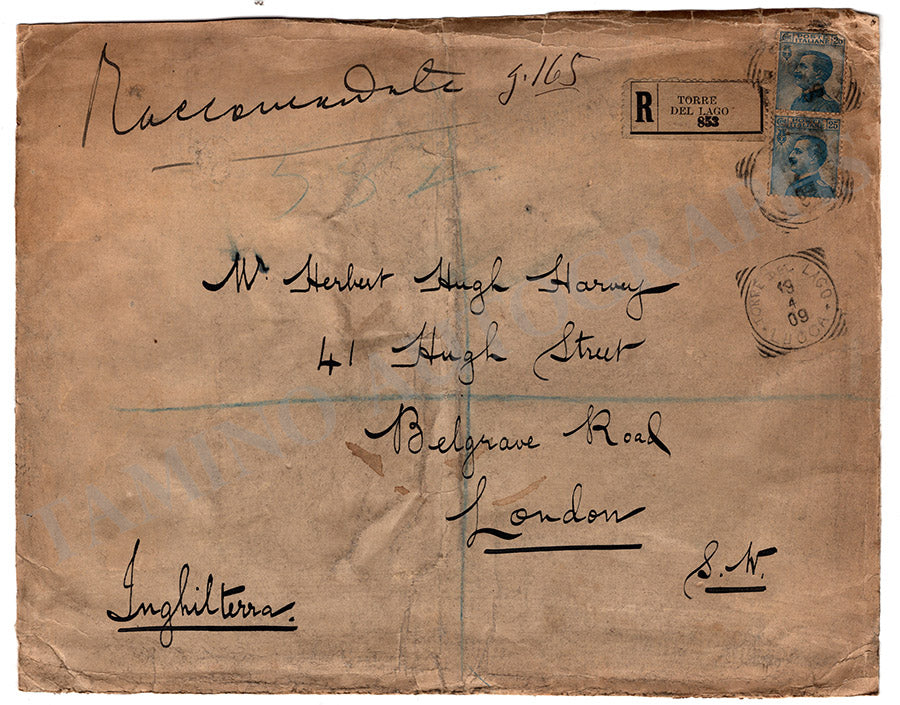 Raccomandata g. 165
R
TORRE
DEL LAGO
853
ITALIANE 25
25
582
Mr. Herbert Hugh Harvey
TORRE DEL LAGO
19
4
09
LUCCA
41 Hugh Street
Belgrave Road
London
S.W.
Inghilterra.
TAMINO AUTOGRAPHS